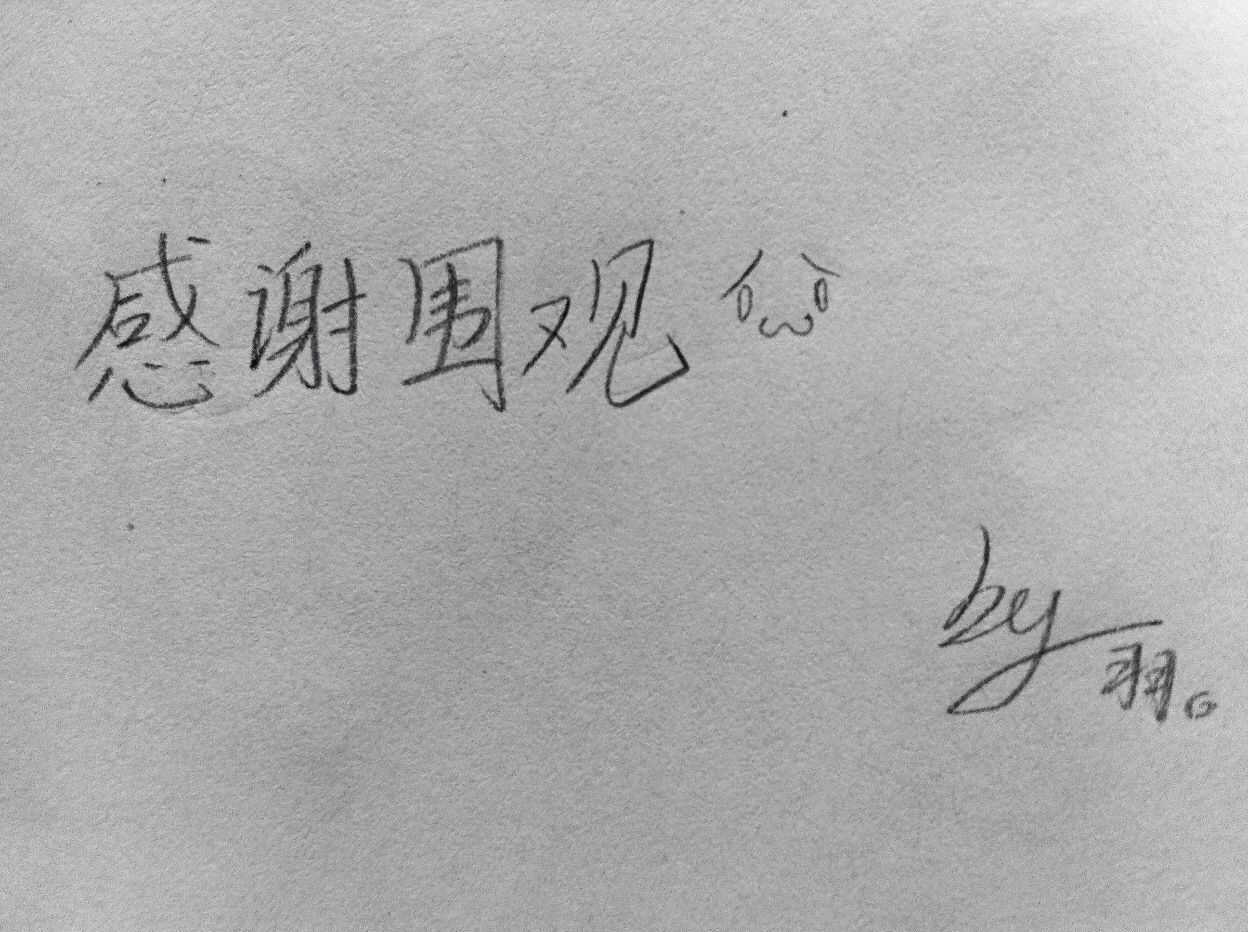 感谢围观
by 羽。